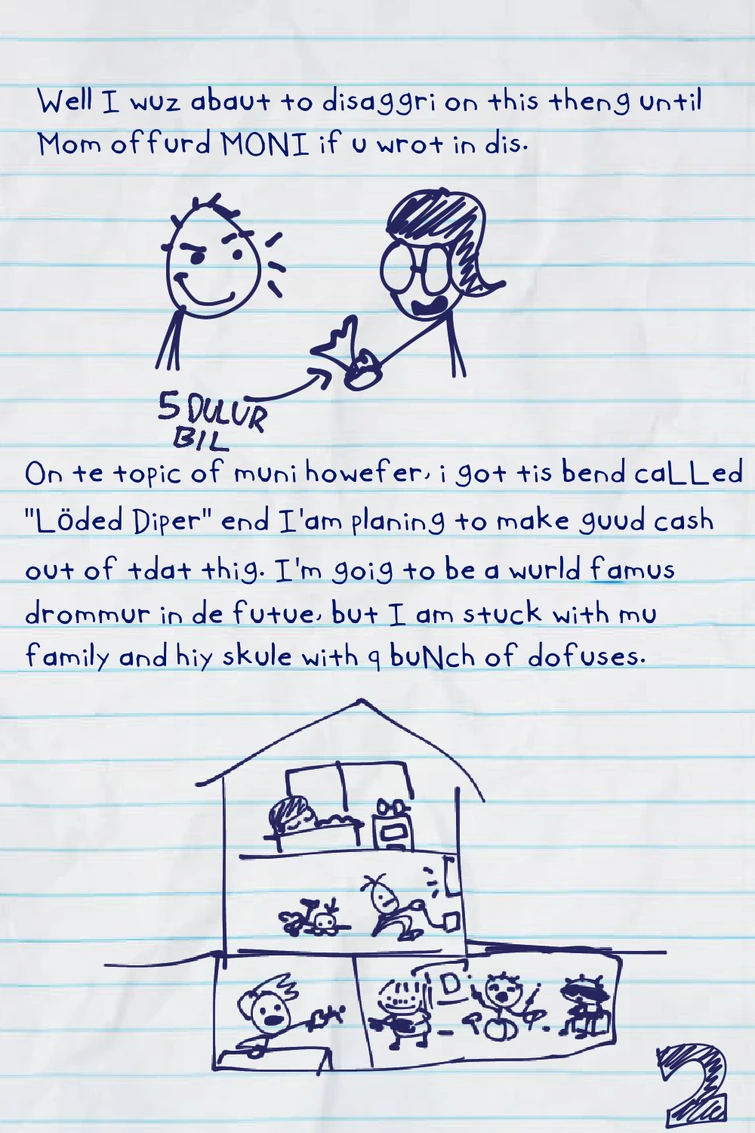 Well I wuz abaut to disaggri on this theng until
Mom offurd MONI if u wrot in dis.
5 DULUR
BIL
On te topic of muni howefer, i got tis bend caLLed
"Löded Diper" end I'am planing to make guud cash
out of tdat thig. I'm goig to be a wurld famus
drommur in de futue, but I am stuck with mu
family and hiy skule with q buNch of dofuses.
D
2